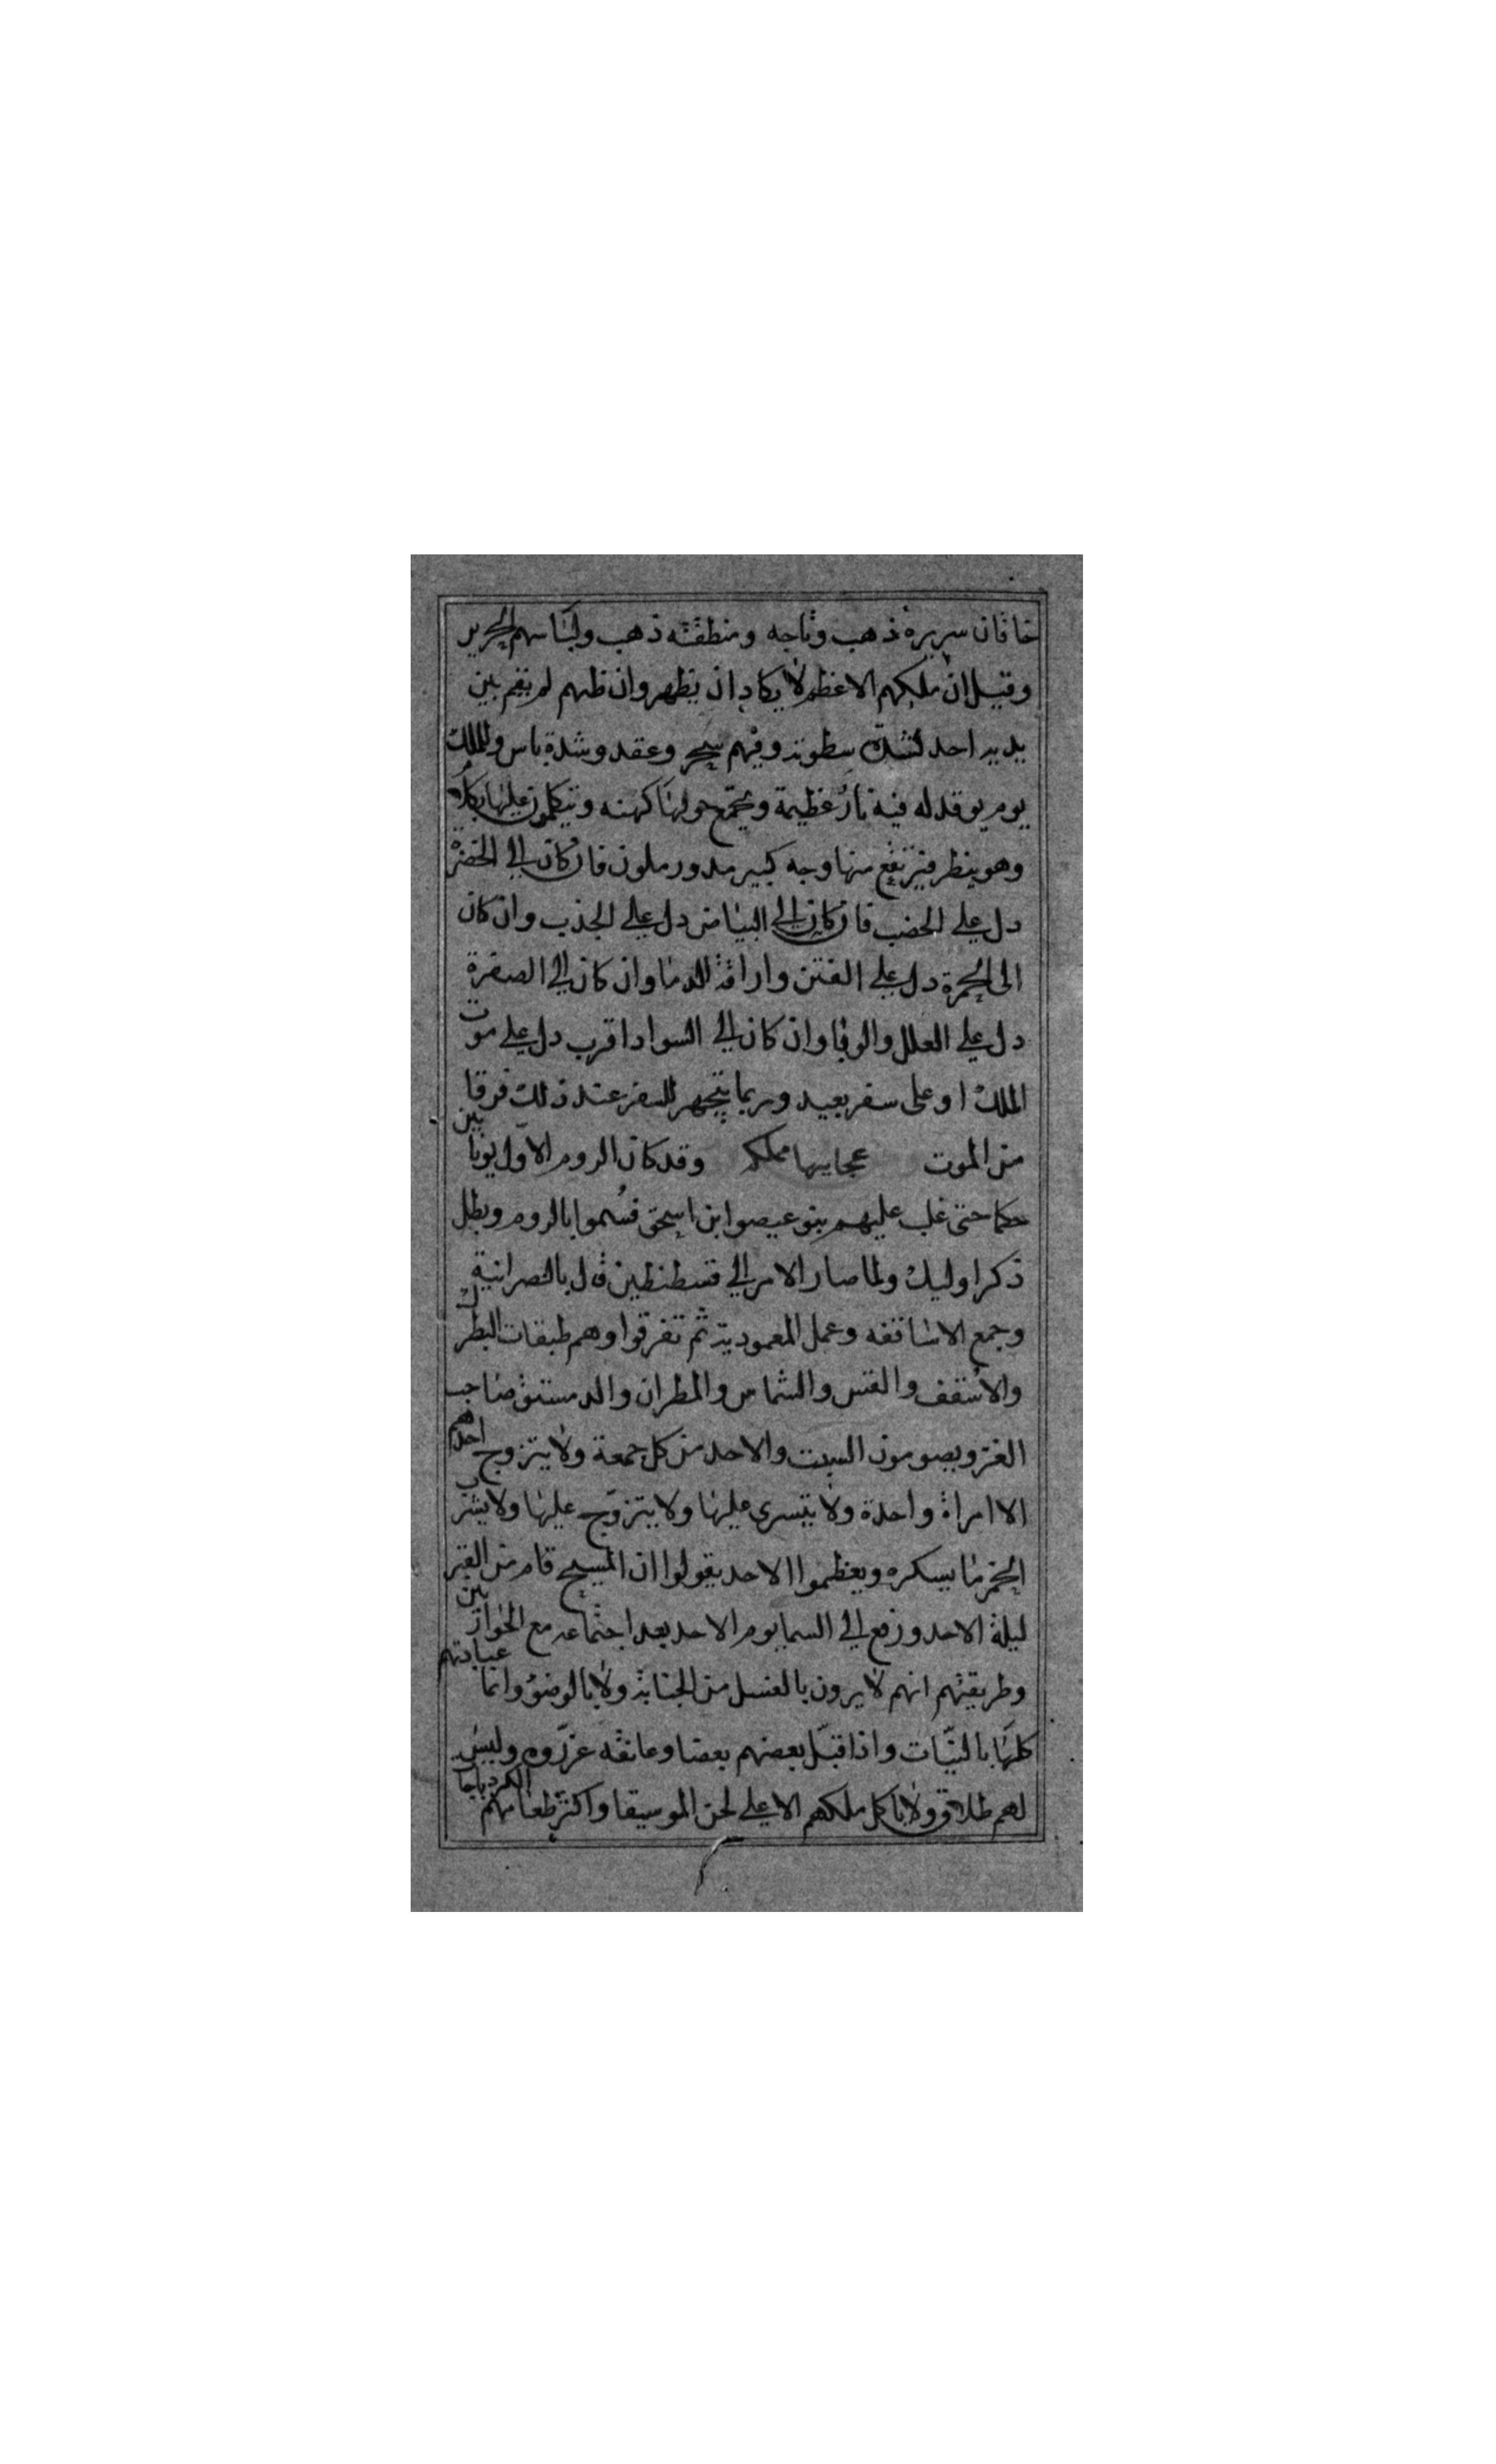 خاقان سريره ذهب وتاجه ومنطقته ذهب ولباسهم الحرير
وقيل ان ملكهم الاعظم لا يكاد ان يظهر وان ظهر لم يقم بين
يديه احد لشدة سطوته وفيهم سحر وعقد وشدة باس وللملك
يوم يوقد له فيه نار عظيمة ويجتمع حولها كهنه ويتكلمون عليها بكلام
وهو ينظر فيرتفع منها وجه كبير مدور ملون فان كان الي الخضرة
دل علي الخصب فان كان الي البياض دل علي الجذب وان كان
الى الحمرة دل علي الفتن واراقة الدما وان كان الي الصفرة
دل علي العلل والوبا وان كان الي السواد اقرب دل علي موت
الملك او على سفر بعيد وربما يتجهز للسفر عند ذلك فرقا
من الموت عجايبها مملكه وقد كان الروم الاول يونانيين
حكما حتى غلب عليهم بنو عيصوا ابن اسحق فسموا بالروم وبطل
ذكر اوليك ولما صار الامر الي قسطنطين قال بالنصرانية
وجمع الاساقفه وعمل المعمودية ثم تفرقوا وهم طبقات البطرك
والاسقف والقس والشماس والمطران والدمستق صاحب
الغز ويصومون السبت والاحد من كل جمعة ولا يتزوج احدهم
الا امراة واحدة ولا يتسرى عليها ولا يتزوج عليها ولا يشرب
الخمر ما يسكره ويعظموا الاحد يقولوا ان المسيح قام من القبر
ليلة الاحد ورفع الي السما يوم الاحد بعد اجتماعه مع الحواريين
وطريقتهم انهم لا يرون بالغسل من الجنابة ولا بالوضو وانما عبادتهم
كلها بالنيات واذا قبل بعضهم بعضا وعانقه عزروه وليس
لهم طلاق ولا ياكل ملكهم الا علي لحن الموسيقا واكثر طعامهم